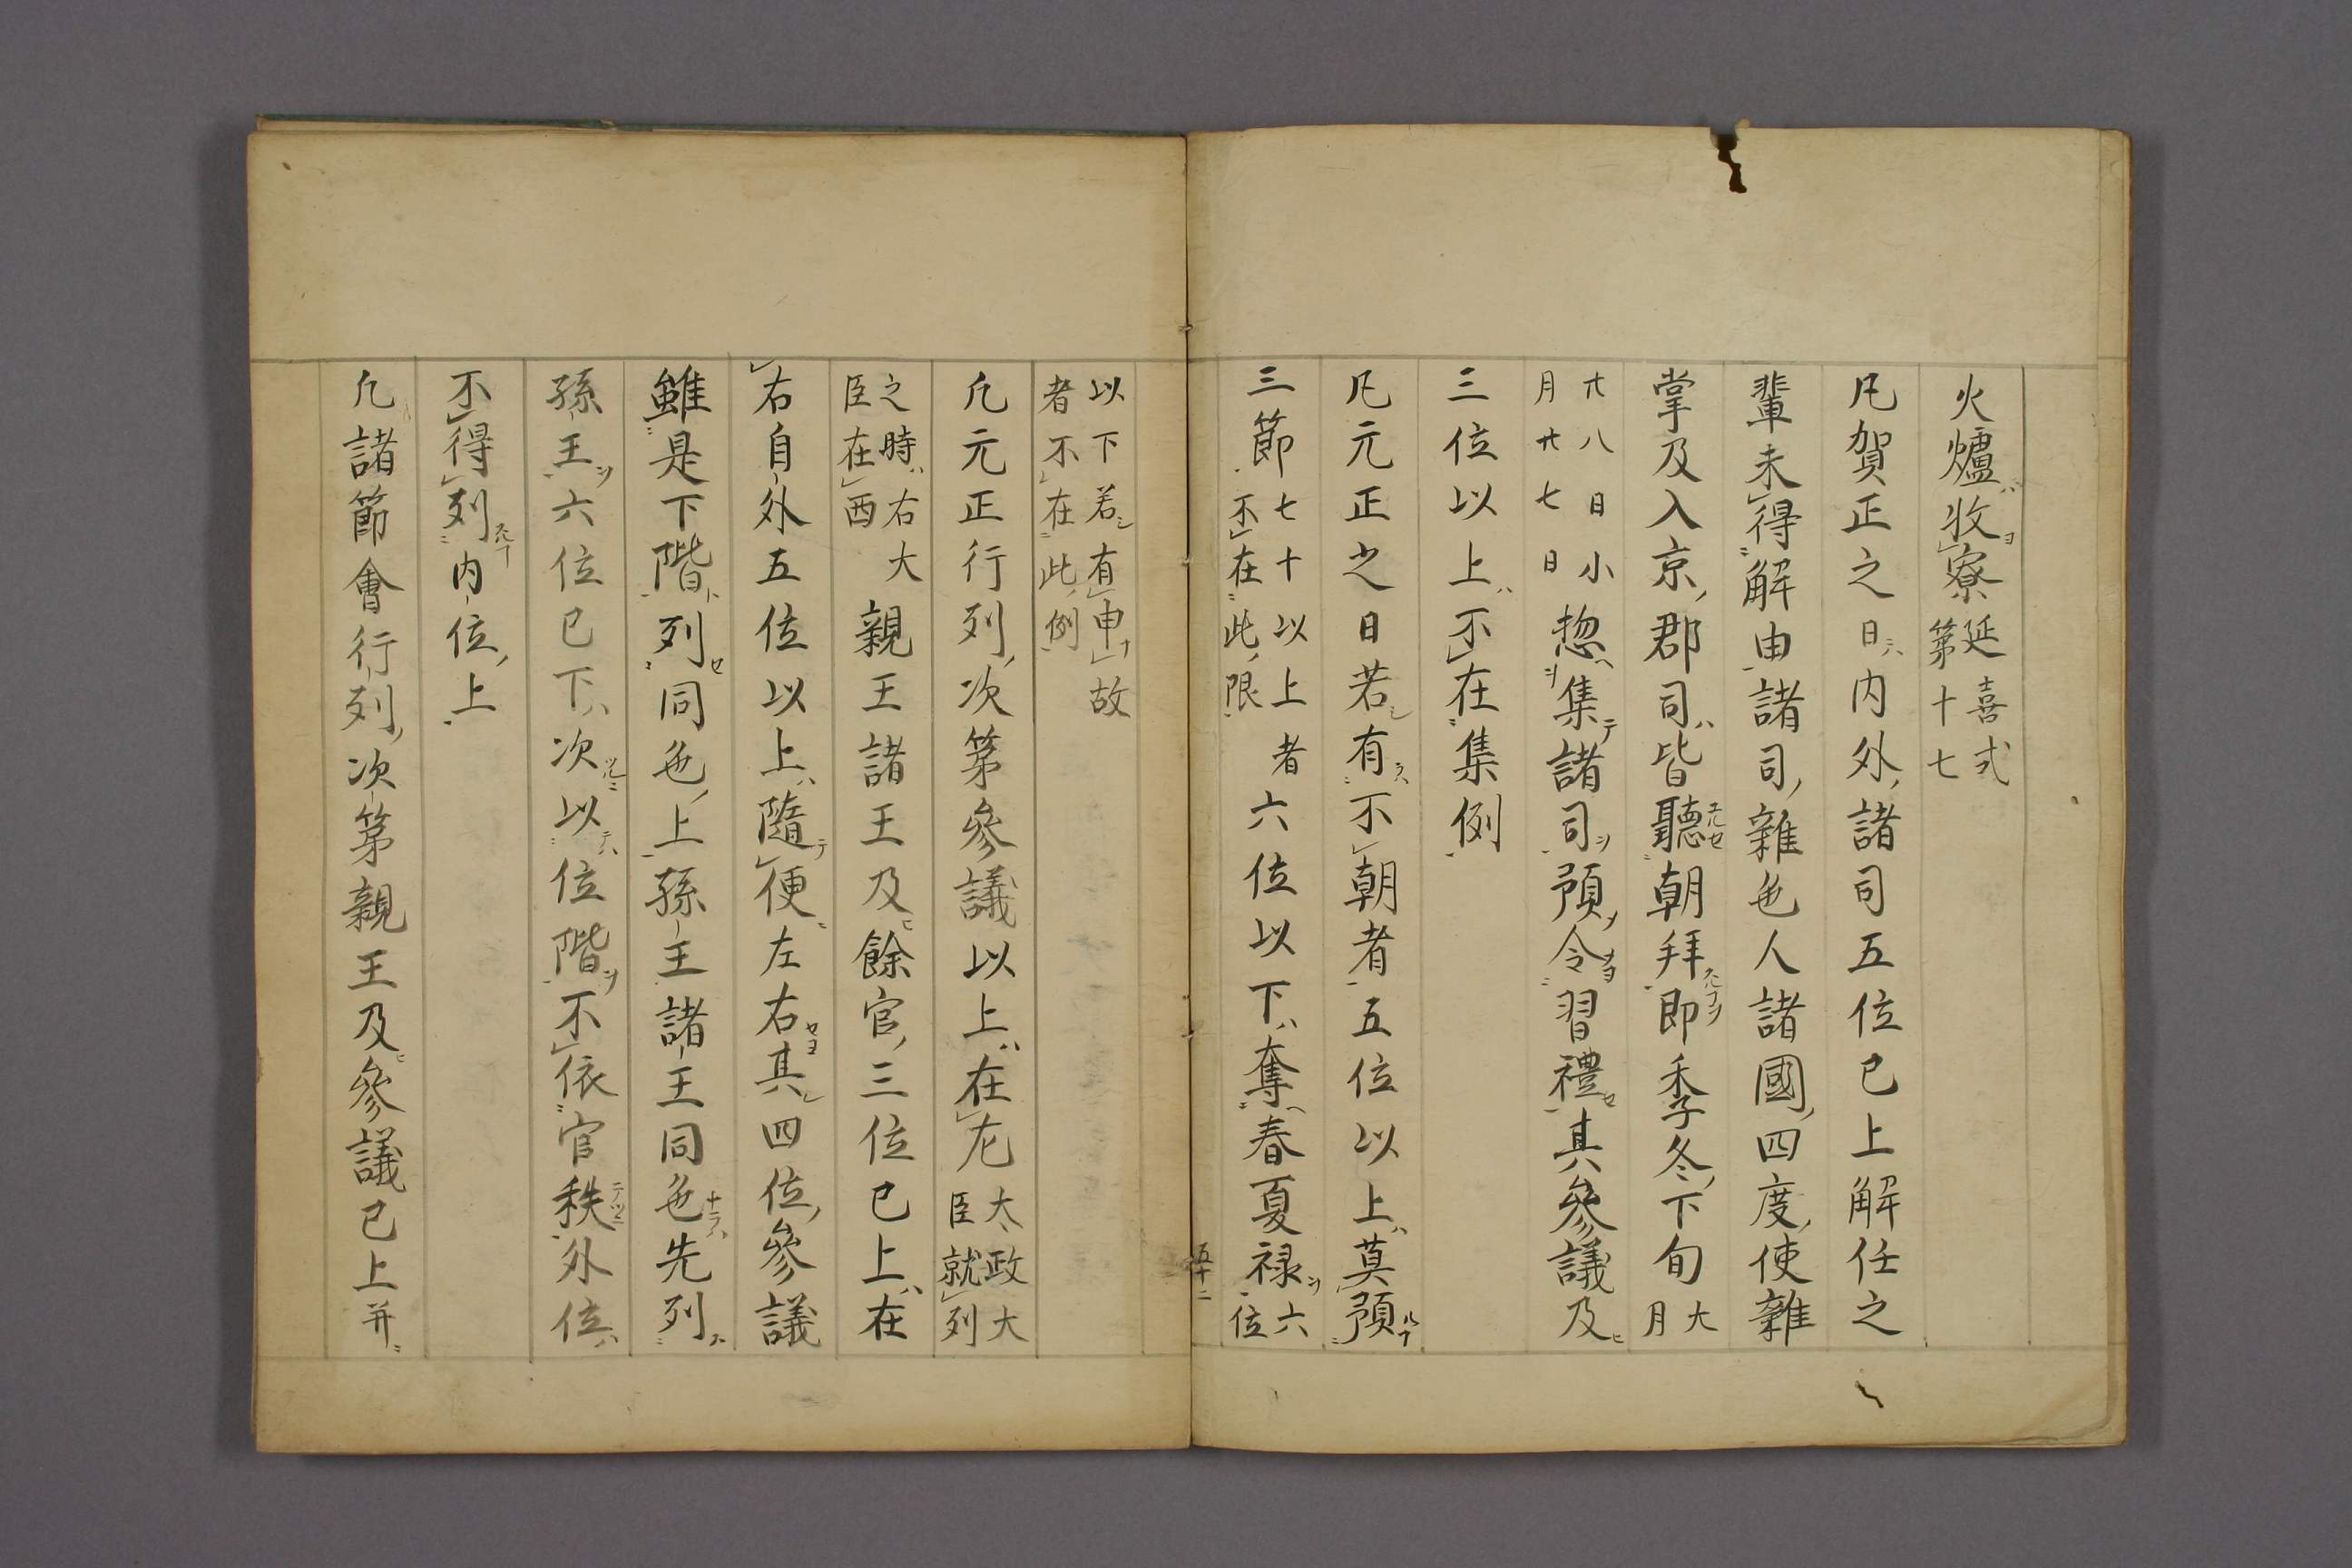 火爐収寮延喜式第十七
凡賀正之日内外諸司五位已上解任之
輩未得解由諸司雜色人諸國四度使雜
掌及入京郡司皆聽朝拜即季冬下旬大月
廿八日小月廿七日惣集諸司預令習禮其參議及
三位以上不在集例
凡元正之日若有不朝者五位以上莫預
三節七十以上者不在此限六位以下奪春夏禄六位
五十二
以下若有申故者不在此例
凡元正行列次第參議以上在左太政大臣就列
之時右大臣在西親王諸王及餘官三位已上在
右自外五位以上隨便左右其四位參議
雖是下階列同色上孫王諸王同色先列
孫王六位已下次以位階不依官秩外位
不得列内位上
凡諸節會行列次第親王及參議已上并